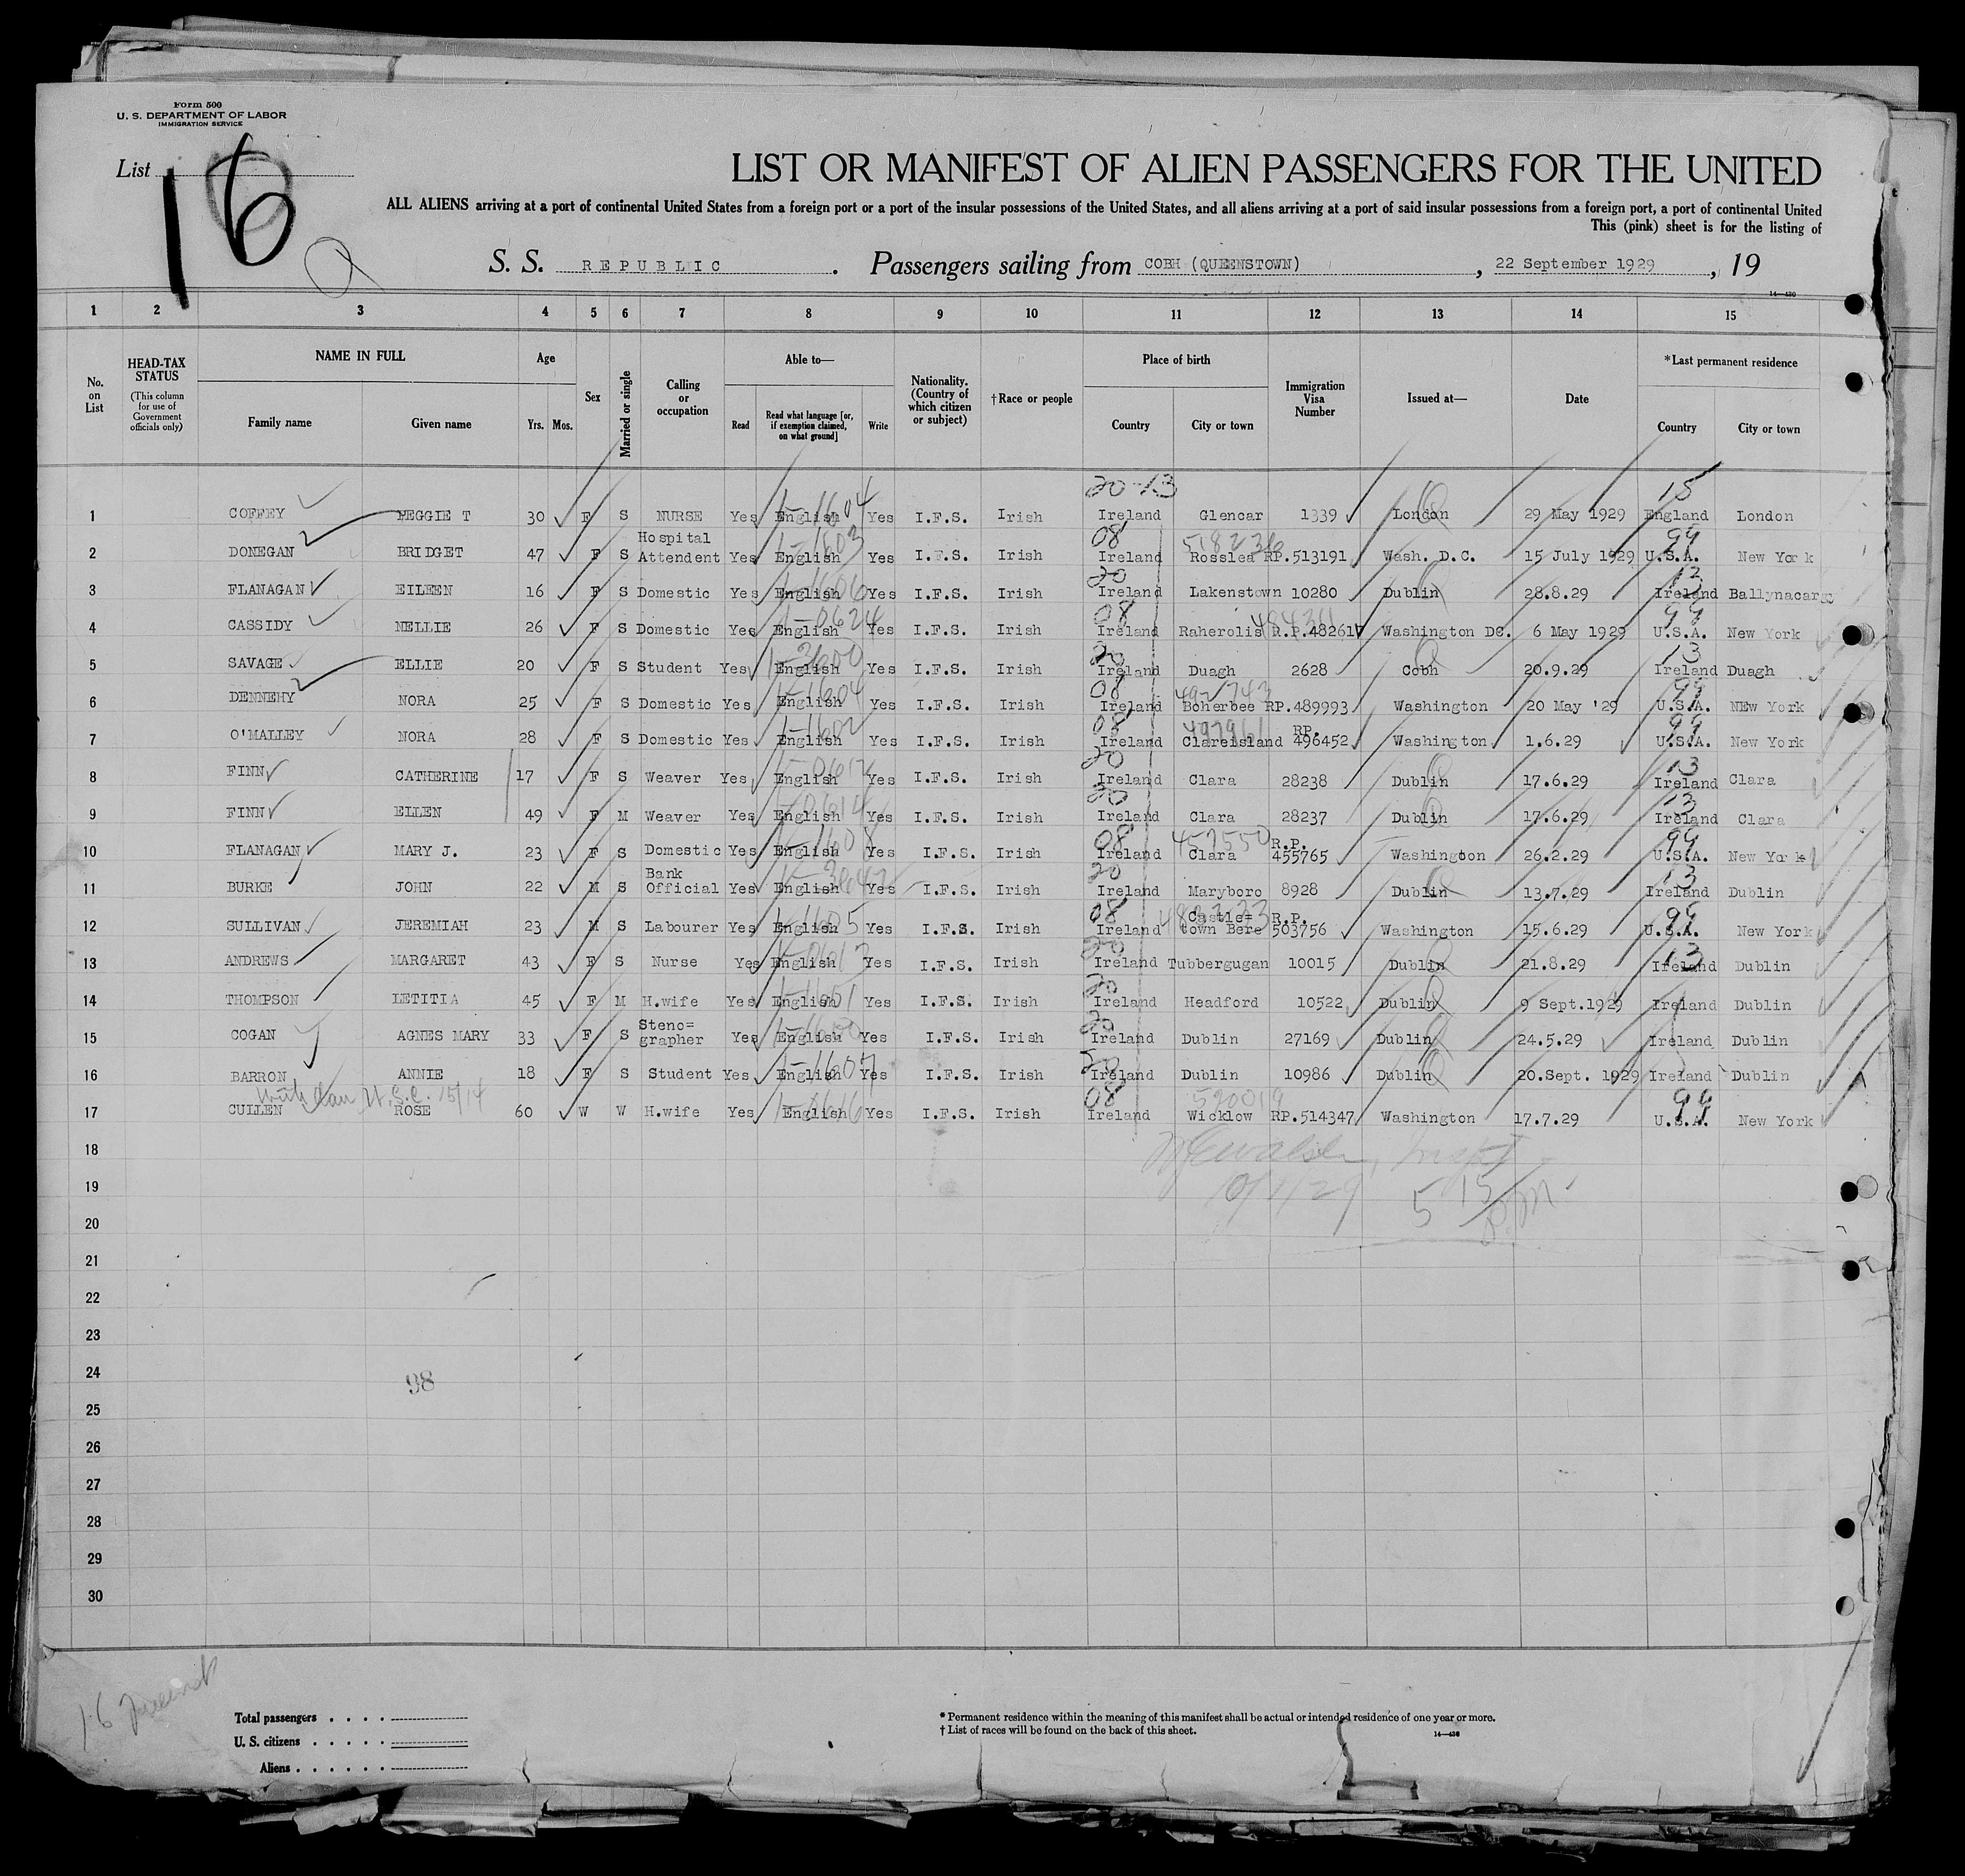 Form 500
U. S. DEPARTMENT OF LABOR
IMMIGRATION SERVICE
List 16
LIST OR MANIFEST OF ALIEN PASSENGERS FOR THE UNITED
ALL ALIENS arriving at a port of continental United States from a foreign port or a port of the insular possessions of the United States, and all aliens arriving at a port of said insular possessions from a foreign port, a port of continental United
This (pink) sheet is for the listing of
S. S. REPUBLIC . Passengers sailing from COBH (QUEENSTOWN) , 22 September 1929 , 19
14—430
1 2 3 4 5 6 7 8 9 10 11 12 13 14 15
No. on List
HEAD-TAX STATUS
(This column for use of Government officials only)
NAME IN FULL
Family name Given name
Age
Yrs. Mos.
Sex
Married or single
Calling or occupation
Able to—
Read
Read what language [or, if exemption claimed, on what ground]
Write
Nationality. (Country of which citizen or subject)
†Race or people
Place of birth
Country City or town
Immigration Visa Number
Issued at—
Date
*Last permanent residence
Country City or town
20-13 15
1 COFFEY PEGGIE T 30 F S NURSE Yes English 1-1604 Yes I.F.S. Irish Ireland Glencar 1339 London 29 May 1929 England London
08 518236 99
2 DONEGAN BRIDGET 47 F S Hospital Attendent Yes English 1-1603 Yes I.F.S. Irish Ireland Rosslea RP.513191 Wash. D.C. 15 July 1929 U.S.A. New York
20 13
3 FLANAGAN EILEEN 16 F S Domestic Yes English 1-1606 Yes I.F.S. Irish Ireland Lakenstown 10280 Dublin 28.8.29 Ireland Ballynacargy
08 99
4 CASSIDY NELLIE 26 F S Domestic Yes English 1-0624 Yes I.F.S. Irish Ireland Raherolis R.P.482617 Washington DC. 6 May 1929 U.S.A. New York
20 13
5 SAVAGE ELLIE 20 F S Student Yes English Yes I.F.S. Irish Ireland Duagh 2628 Cobh 20.9.29 Ireland Duagh
08 492743 99
6 DENNEHY NORA 25 F S Domestic Yes English 1-1604 Yes I.F.S. Irish Ireland Boherbee RP.489993 Washington 20 May '29 U.S.A. NEw York
08 497961 99
7 O'MALLEY NORA 28 F S Domestic Yes English 1-1602 Yes I.F.S. Irish Ireland Clareisland RP. 496452 Washington 1.6.29 U.S.A. New York
20 13
8 FINN CATHERINE 17 F S Weaver Yes English Yes I.F.S. Irish Ireland Clara 28238 Dublin 17.6.29 Ireland Clara
20 13
9 FINN ELLEN 49 F M Weaver Yes English Yes I.F.S. Irish Ireland Clara 28237 Dublin 17.6.29 Ireland Clara
08 457550 99
10 FLANAGAN MARY J. 23 F S Domestic Yes English 1-1608 Yes I.F.S. Irish Ireland Clara R.P. 455765 Washington 26.2.29 U.S.A. New York
20 13
11 BURKE JOHN 22 M S Bank Official Yes English Yes I.F.S. Irish Ireland Maryboro 8928 Dublin 13.7.29 Ireland Dublin
08 99
12 SULLIVAN JEREMIAH 23 M S Labourer Yes English 1-1605 Yes I.F.S. Irish Ireland Castle= town Bere R.P. 503756 Washington 15.6.29 U.S.A. New York
20 13
13 ANDREWS MARGARET 43 F S Nurse Yes English Yes I.F.S. Irish Ireland Tubbergugan 10015 Dublin 21.8.29 Ireland Dublin
20
14 THOMPSON LETITIA 45 F M H.wife Yes English 1-1601 Yes I.F.S. Irish Ireland Headford 10522 Dublin 9 Sept.1929 Ireland Dublin
20
15 COGAN AGNES MARY 33 F S Steno= grapher Yes English 1-1600 Yes I.F.S. Irish Ireland Dublin 27169 Dublin 24.5.29 Ireland Dublin
20
16 BARRON ANNIE 18 F S Student Yes English 1-1607 Yes I.F.S. Irish Ireland Dublin 10986 Dublin 20.Sept. 1929 Ireland Dublin
08 520019 99
17 CULLEN ROSE 60 W W H.wife Yes English Yes I.F.S. Irish Ireland Wicklow RP.514347 Washington 17.7.29 U.S.A. New York
18
19 10/1/29 5 15 P.M.
20
21
22
23
24 98
25
26
27
28
29
30
16
Total passengers . . . .
U. S. citizens . . . . .
Aliens . . . . . .
* Permanent residence within the meaning of this manifest shall be actual or intended residence of one year or more.
† List of races will be found on the back of this sheet.
14—430